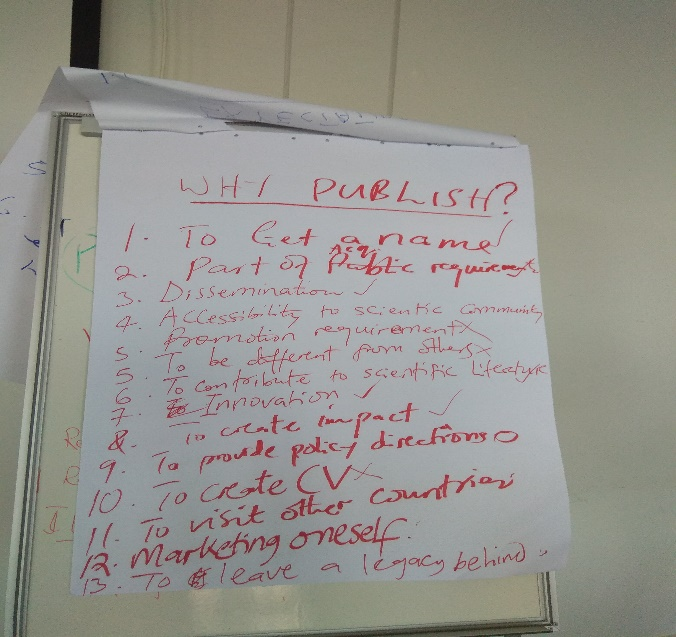 WHY PUBLISH?
1. To Get a name
Acq.
2. Part of Public requirements
3. Dissemination ✓
4. Accessibility to scientic Community
5. Promotion requirement X
5. To be different from others X
6. To contribute to scientific Litecture
7. Innovation ✓
8. To create impact ✓
9. To provide policy directions O
10. To create CV X
11. To visit other countries
12. Marketing oneself.
13. To leave a legacy behind.